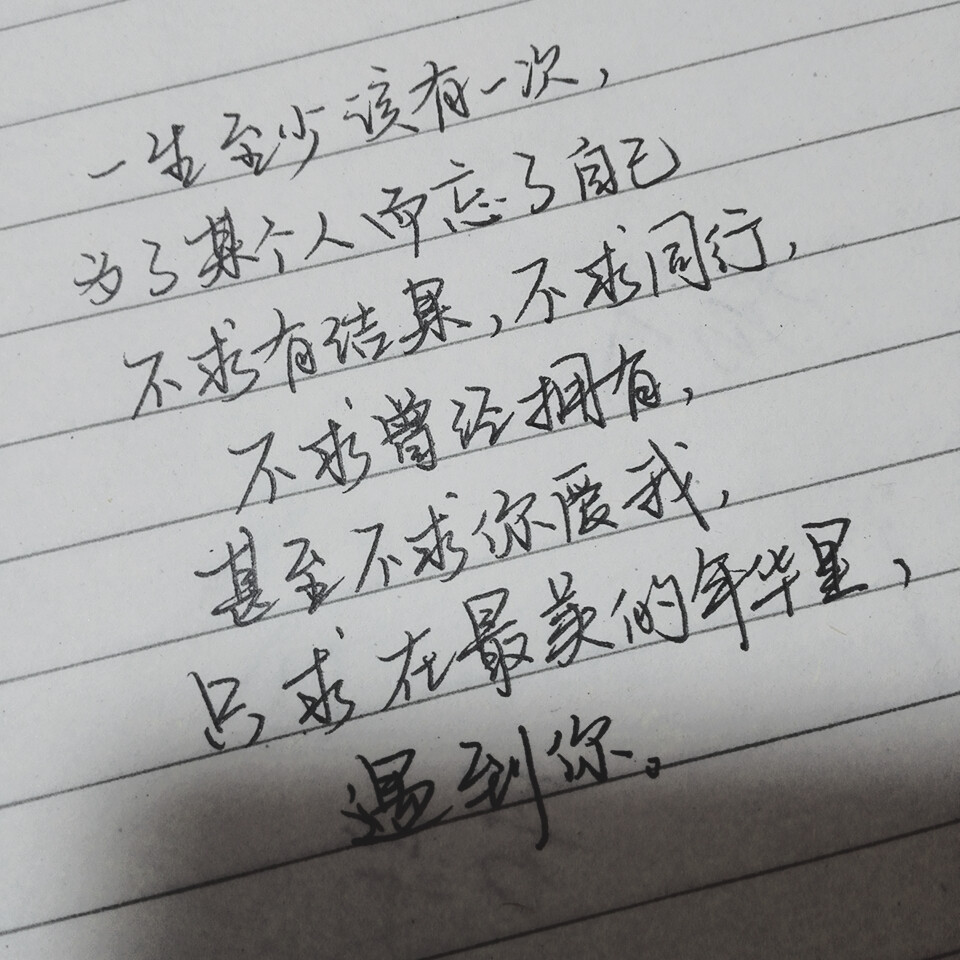 一生至少该有一次，
为了某个人而忘了自己
不求有结果，不求同行，
不求曾经拥有，
甚至不求你爱我，
只求在最美的年华里，
遇到你。